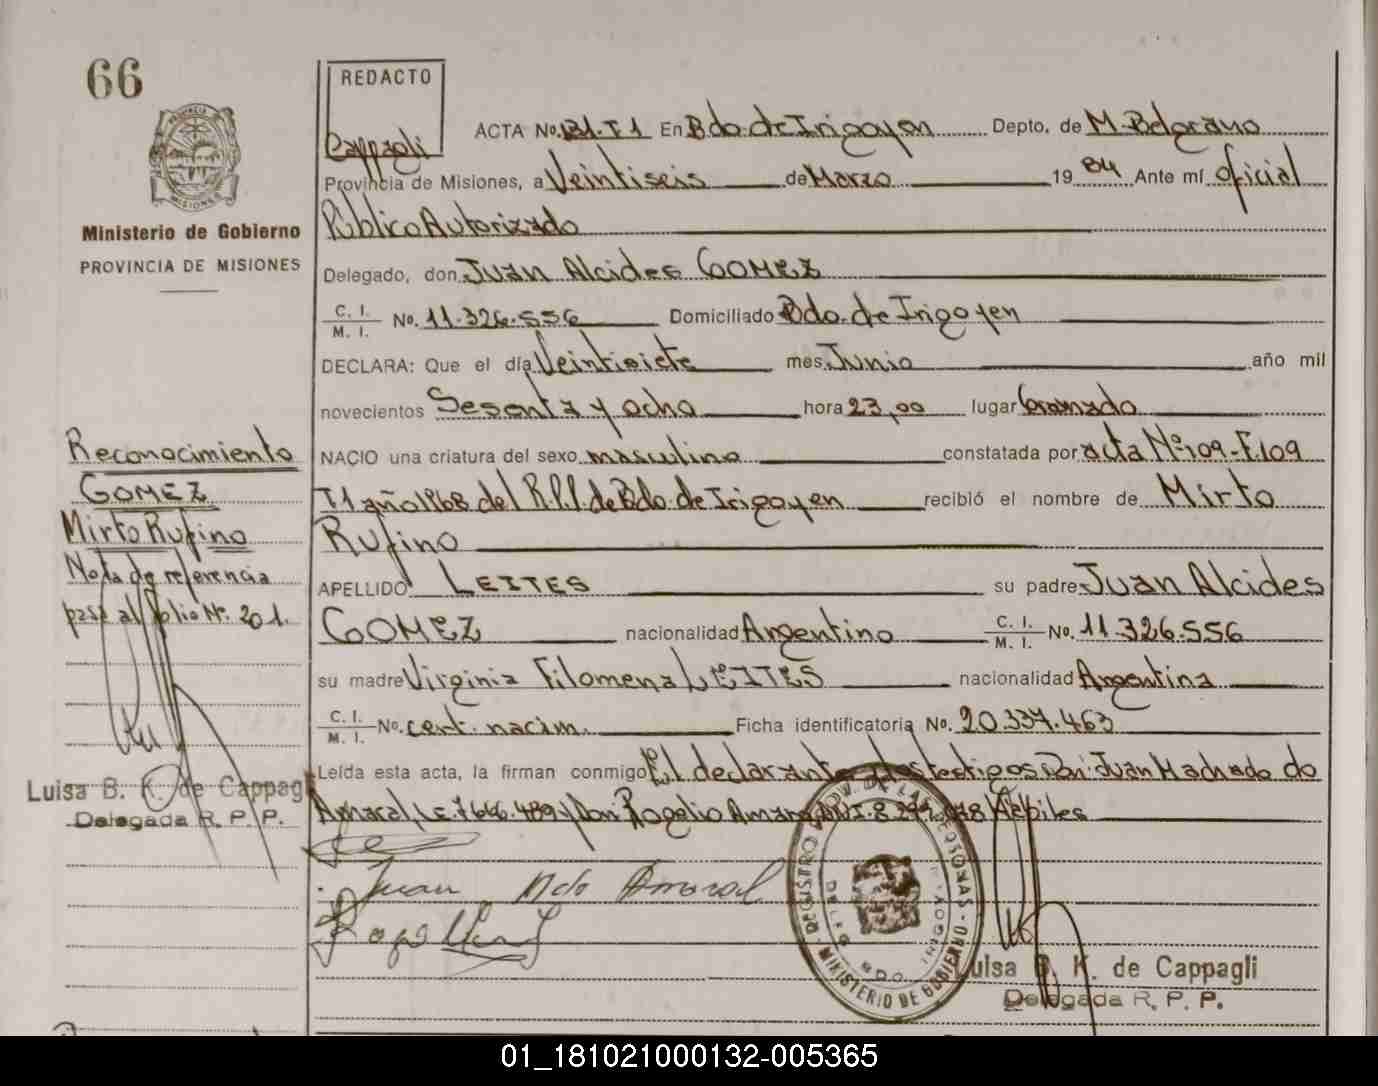 66
REDACTO
Cappagli
PROVINCIA DE
MISIONES
Ministerio de Gobierno
PROVINCIA DE MISIONES
ACTA No. 131-T1 En Bdo. de Irigoyen Depto. de M. Belgrano
Provincia de Misiones, a Veintiseis de Marzo 1984 Ante mí oficial
Público Autorizado
Delegado, don Juan Alcides GOMEZ
C. I. / M. I. No. 11.326.556 Domiciliado Bdo. de Irigoyen
DECLARA: Que el día Veintisiete mes Junio año mil
novecientos Sesenta y ocho hora 23,00 lugar
NACIO una criatura del sexo masculino constatada por acta Nº 109-F109
T1 año 1968 del de Bdo. de Irigoyen recibió el nombre de Mirto
Rufino
APELLIDO LEITES su padre Juan Alcides
GOMEZ nacionalidad Argentino C. I. / M. I. No. 11.326.556
su madre Virginia Filomena LEITES nacionalidad Argentina
C. I. / M. I. No. cert. nacim. Ficha identificatoria No. 20.337.463
Leída esta acta, la firman conmigo El declarante testigos Don: Juan Machado do
Amaral, L.E. 7.646.489 y Don Rogelio Amaral Hábiles
Juan Mdo Amaral
Reconocimiento
GOMEZ
Mirto Rufino
Nota de referencia
pase al folio Nº 201.
Luisa B. K. de Cappagli
Delegada R. P. P.
MINISTERIO DE GOBIERNO
Luisa B. K. de Cappagli
Delegada R. P. P.
01_181021000132-005365